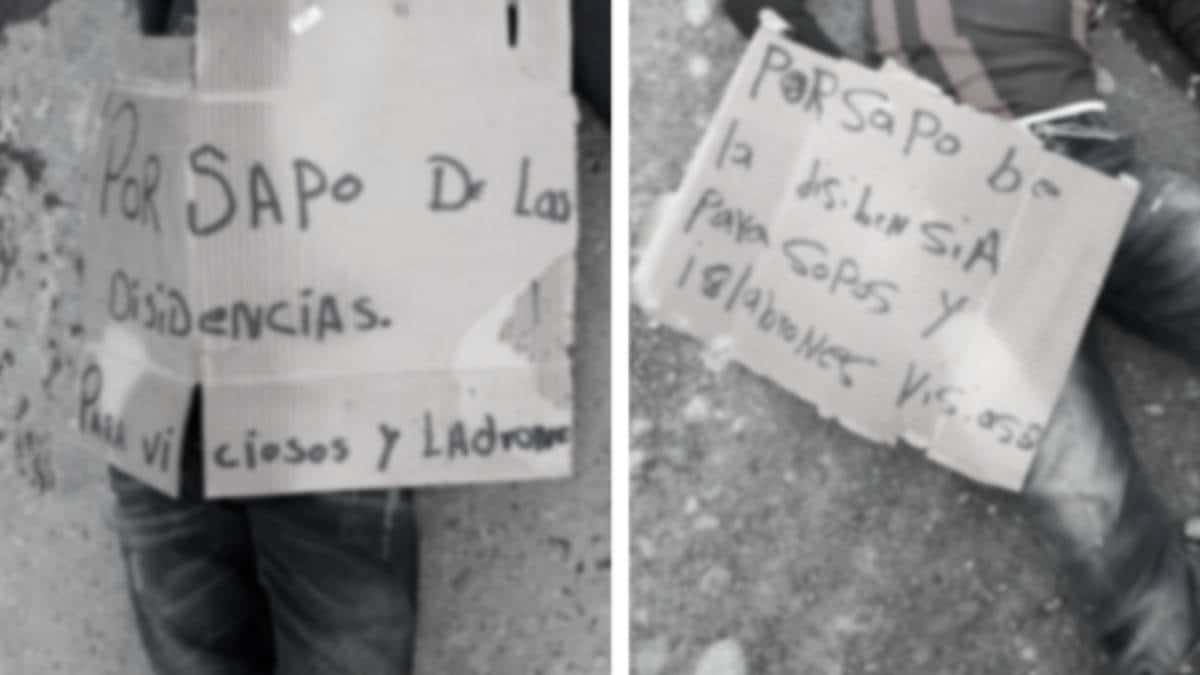 POR SAPO De Las
DisiDeNCiAS.
PARA vi ciosos y LAdrone
PORSaPo be
la disiben SiA
para Sopos y
ladroNes Visioso